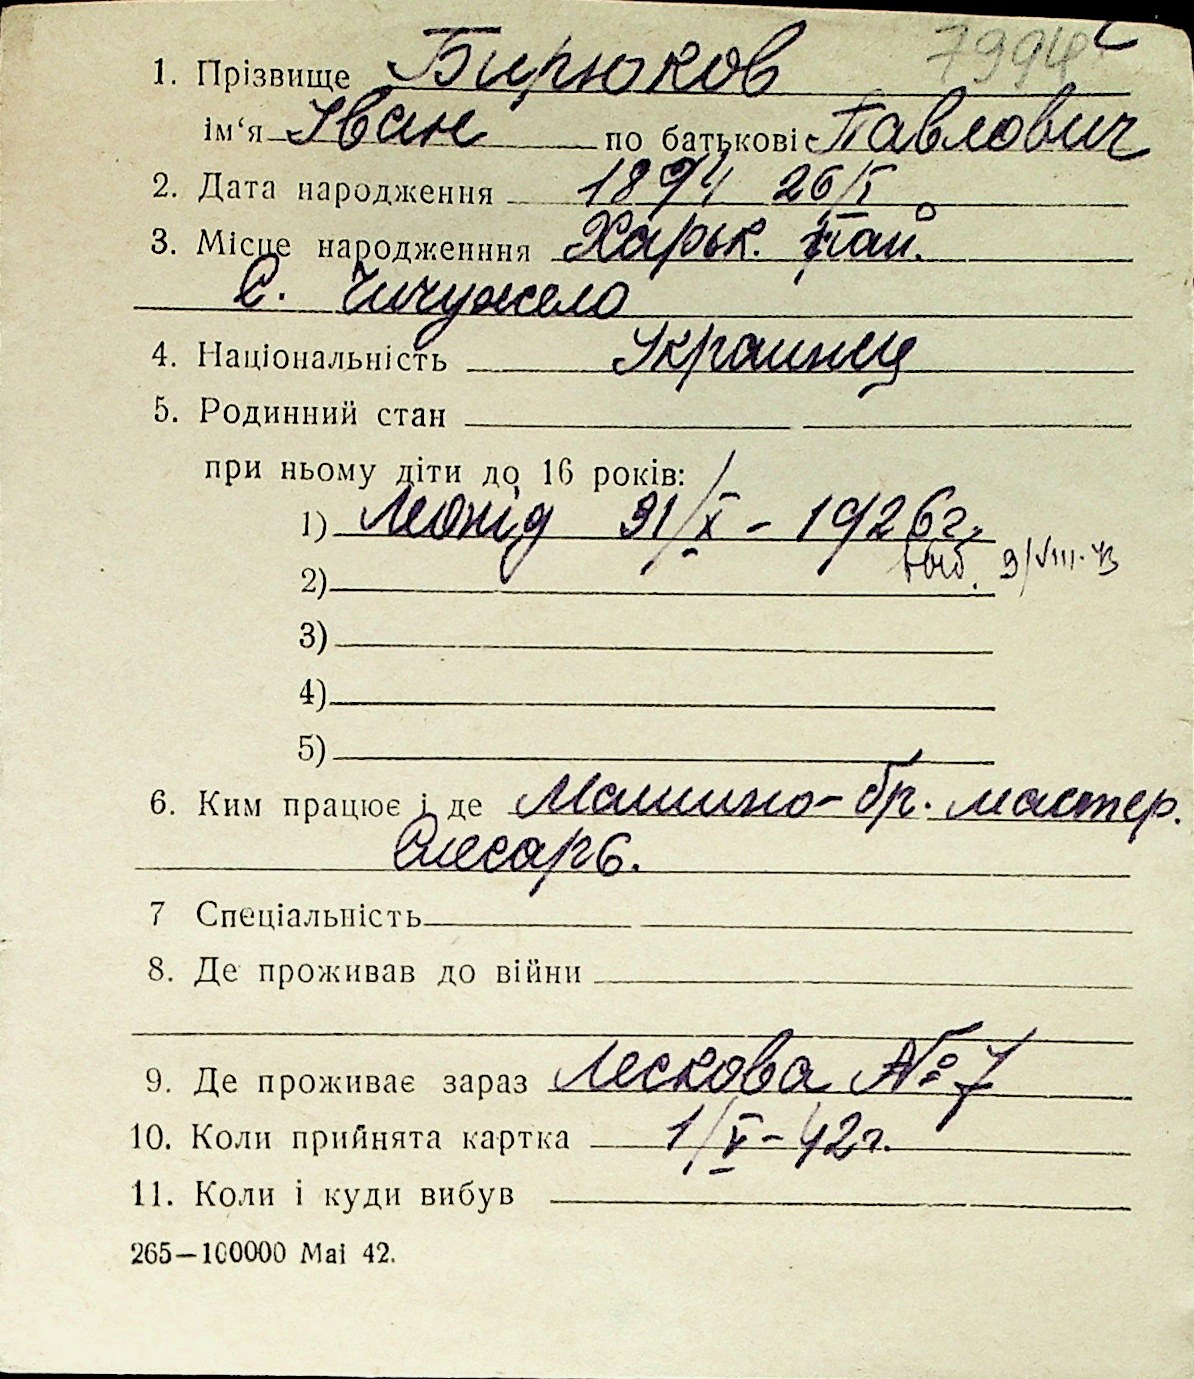 7994
1. Прізвище Бирюков
ім‘я Іван по батькові Павлович
2. Дата народження 1894 26/I
3. Місце народженння Харьк.
с.
4. Національність Украинец
5. Родинний стан
при ньому діти до 16 років:
1) Леонід 31/X - 1926г.
выб. 9/VIII-43
2)
3)
4)
5)
6. Ким працює і де Машино-бр. мастер.
Слесарь.
7 Спеціальність
8. Де проживав до війни
9. Де проживає зараз Лескова № 7
10. Коли прийнята картка 1/V-42г.
11. Коли і куди вибув
265—100000 Mai 42.